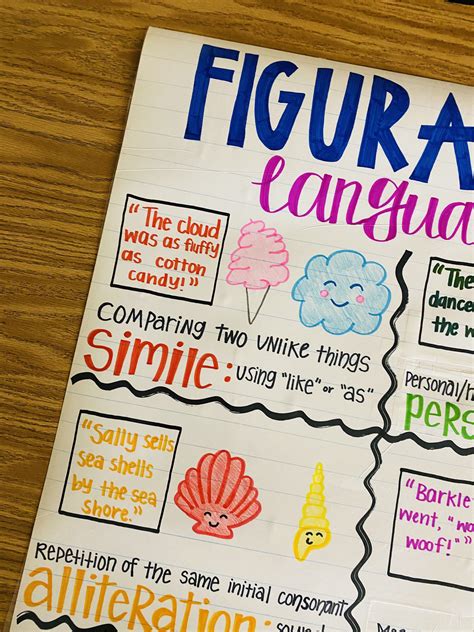 FIGURA
Langua
"The cloud
was as fluffy
as cotton
candy!"
COMPARING TWO UNLIKE THINGS
Simile: using "like" or "as"
"The
danced
the w
Personal/h
PERS
"Sally sells
sea shells
by the sea
shore."
REPETITION OF THE SAME INITIAL CONSONANT
alliteration:
"Barkle
went, "wo
woof!"